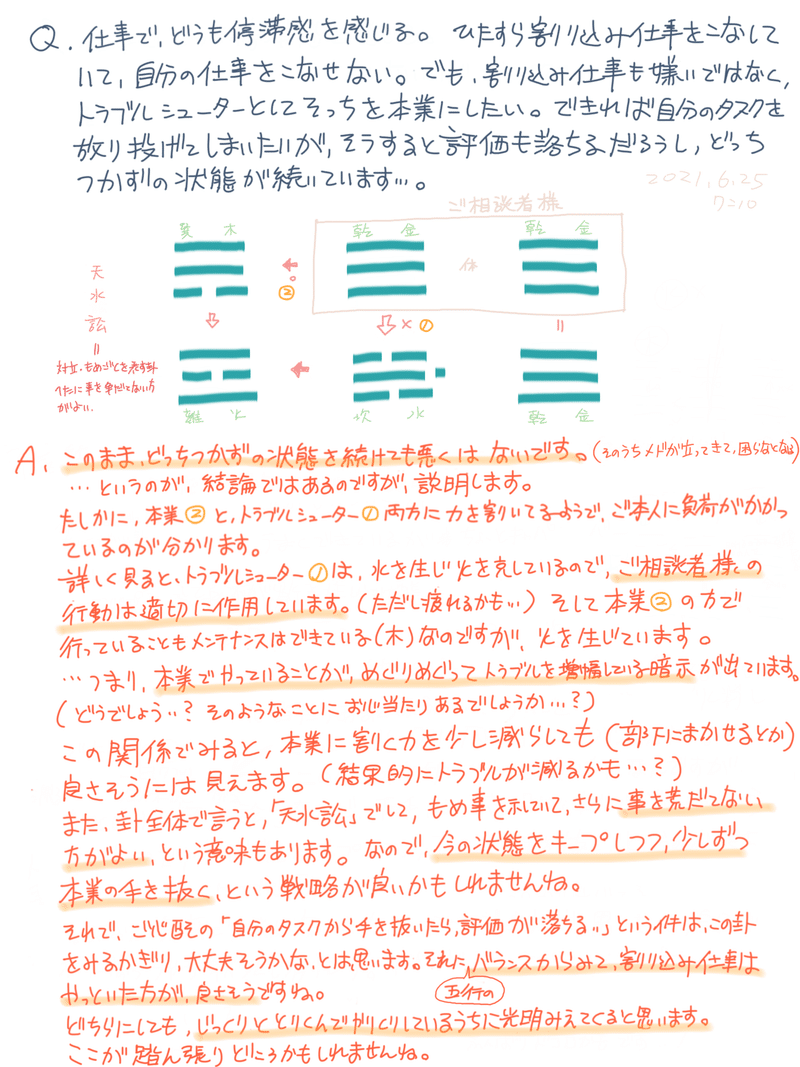 Q. 仕事で、どうも停滞感を感じる。ひたすら割り込み仕事をこなして
いて、自分の仕事をこなせない。でも、割り込み仕事も嫌いではなく、
トラブルシューターとしてそっちを本業にしたい。できれば自分のタスクを
放り投げてしまいたいが、そうすると評価も落ちるだろうし、どっち
つかずの状態が続いています…。
2021.6.25
7:10
ご相談者様
巽 木
乾 金
乾 金
体
天
水
訟
②
×①
=
=
対立、もめごとを表す卦
へたに事を荒だてない方
がよい。
離 火
坎 水
乾 金
A. このまま、どっちつかずの状態を続けても悪くはないです。(そのうちメドが立ってきて、困らなくなる)
…というのが、結論ではあるのですが、説明します。
たしかに、本業②と、トラブルシューター①両方に力を割いてるようで、ご本人に負荷がかかっ
ているのが分かります。
詳しく見ると、トラブルシューター①は、水を生じ火を克しているので、ご相談者様の
行動は適切に作用しています。(ただし疲れるかも…) そして本業②の方で
行っていることもメンテナンスはできている(木)なのですが、火を生じています。
…つまり、本業でやっていることが、めぐりめぐってトラブルを増幅している暗示が出ています。
(どうでしょう…? そのようなことにお心当たりあるでしょうか…?)
この関係でみると、本業に割く力を少し減らしても(部下にまかせるとか)
良さそうには見えます。(結果的にトラブルが減るかも…?)
また、卦全体で言うと、「天水訟」でして、もめ事を示していて、さらに事を荒だてない
方がよい、という意味もあります。なので、今の状態をキープしつつ、少しずつ
本業の手を抜く、という戦略が良いかもしれませんね。
それで、ご心配その「自分のタスクから手を抜いたら、評価が落ちる…」という件は、この卦
をみるかぎり、大丈夫そうかな、とは思います。それに、バランスからみて、割り込み仕事は
やっといた方が、良さそうですね。
五行の
どちらにしても、じっくりととりくんでやりくりしているうちに光明みえてくると思います。
ここが踏ん張りどころかもしれませんね。